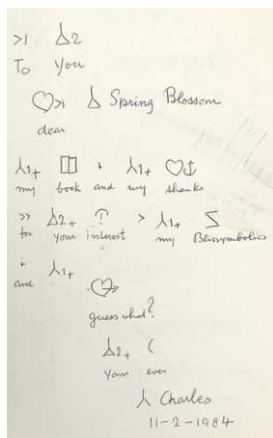 >1 2
To You
>1 Spring Blossom
dear
1+ + 1+
my book and my thanks
>> 2+ ? > 1+
for your interest my Blissymbolics
+ 1+
and
guess what?
2+ (
Yours ever
Charles
11-2-1984